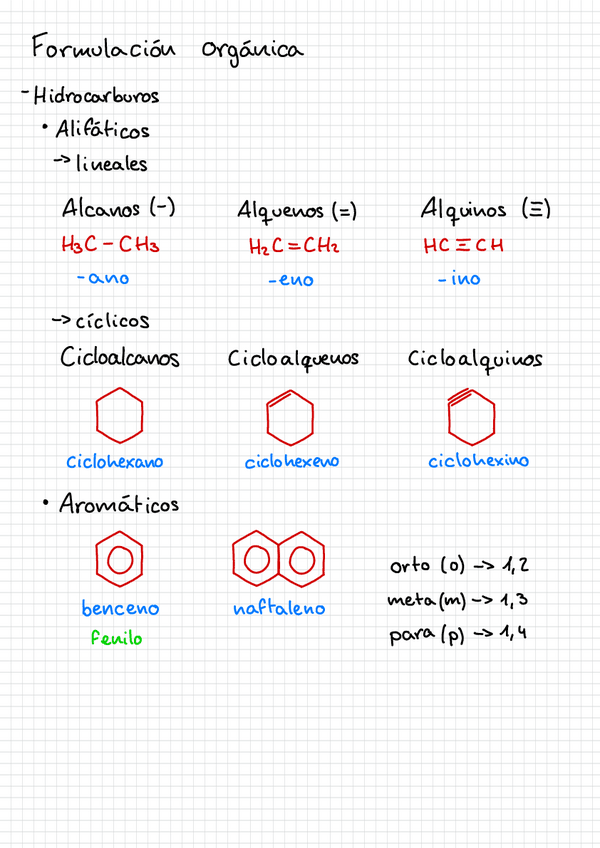 Formulación orgánica
- Hidrocarburos
• Alifáticos
→ lineales
Alcanos (-) Alquenos (=) Alquinos (≡)
H₃C - CH₃ H₂C = CH₂ HC ≡ CH
- ano - eno - ino
→ cíclicos
Cicloalcanos Cicloalquenos Cicloalquinos
ciclohexano ciclohexeno ciclohexino
• Aromáticos
orto (o) → 1,2
meta (m) → 1,3
para (p) → 1,4
benceno naftaleno
fenilo